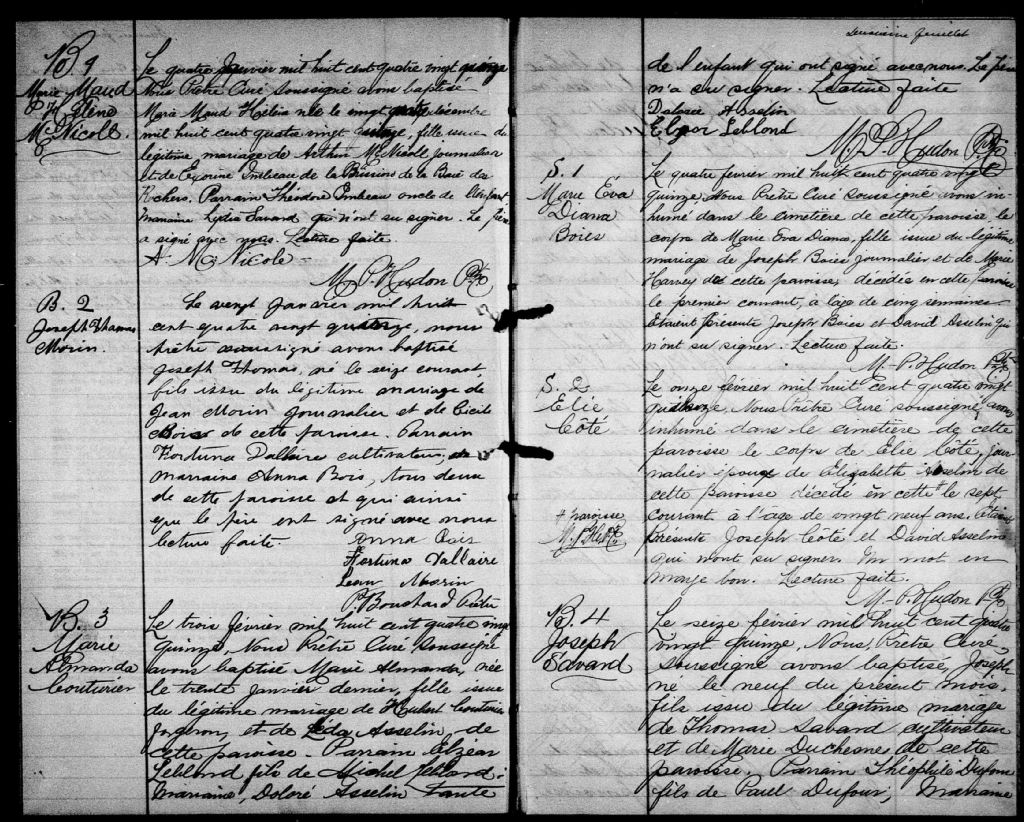 B. 1
Marie Maud
Hélène
McNicoll.
Le quatre Janvier mil huit cent quatre vingt quinze
Nous Prêtre Curé soussigné avons baptisé
Marie Maud Hélène née le vingt décembre
mil huit cent quatre vingt, fille issue du
légitime mariage de Arthur McNicoll journalier
et de Georgine Imbeau de la Mission de la Baie des
Rochers. Parrain Théodore Imbeau oncle de l'enfant,
Marraine Lydia Savard qui n'ont su signer. Le père
a signé avec nous. Lecture faite.
A. McNicole
M. P. Hudon Ptre
B. 2
Joseph Thomas
Morin.
Le vingt Janvier mil huit
cent quatre vingt quinze, nous
prêtre soussigné avons baptisé
Joseph Thomas, né le seize courant
fils issu du légitime mariage de
Jean Morin Journalier et de Cécile
Bois de cette paroisse. Parrain
Fortuna Dallaire cultivateur,
marraine Anna Bois, tous deux
de cette paroisse et qui ainsi
que le père ont signé avec nous
lecture faite.
Anna Bois
Fortuna Dallaire
Jean Morin
P. Bouchard Prêtre
B. 3
Marie
Almanda
Couturier
Le trois février mil huit cent quatre vingt
Quinze, Nous Prêtre Curé soussigné
avons baptisé Marie Almanda, née
le trente Janvier dernier, fille issue
du légitime mariage de Hubert Couturier
forgeron, et de Léda Asselin de
cette paroisse. Parrain Elzéar
Leblond fils de Michel Leblond;
Marraine, Doloré Asselin tante
Deuxième feuillet
de l'enfant qui ont signé avec nous. Le père
n'a su signer. Lecture faite
Dolorée Asselin
Elzear Leblond
M. P. Hudon Ptre
S. 1
Marie Éva
Diana
Boies
Le quatre fevrier mil huit cent quatre vingt
quinze, Nous Prêtre Curé soussigné avons in-
humé dans le cimetière de cette paroisse, le
corps de Marie Eva Diana, fille issue du légitime
mariage de Joseph Boies journalier et de Marie
Harvey de cette paroisse, décédée en cette paroisse
le premier courant, à l'âge de cinq semaines
Etaient Présents Joseph Boies et David Asselin qui
n'ont su signer. Lecture faite.
M. P. Hudon Ptre
S. 2
Elie
Côté
Le onze février mil huit cent quatre vingt
quinze, Nous Prêtre Curé soussigné, avons
inhumé dans le cimetière de cette
paroisse le corps de Elie Côté, jour-
nalier époux de Elizabeth Asselin de
cette paroisse décédé en cette # le sept
courant à l'âge de vingt neuf ans. Etaient
présents Joseph Côté et David Asselin
qui n'ont su signer. Un mot en
marge bon. Lecture faite.
# paroisse
M. P. H. Ptre
M. P. Hudon Ptre
B. 4
Joseph
Edvard
Le seize février mil huit cent quatre
vingt quinze, Nous, Prêtre Curé,
soussigné avons baptisé, Joseph
né le neuf du présent mois,
fils issu du légitime mariage
de Thomas Savard cultivateur
et de Marie Duchesne de cette
paroisse. Parrain Théophile Dufour
fils de Paul Dufour; Marraine